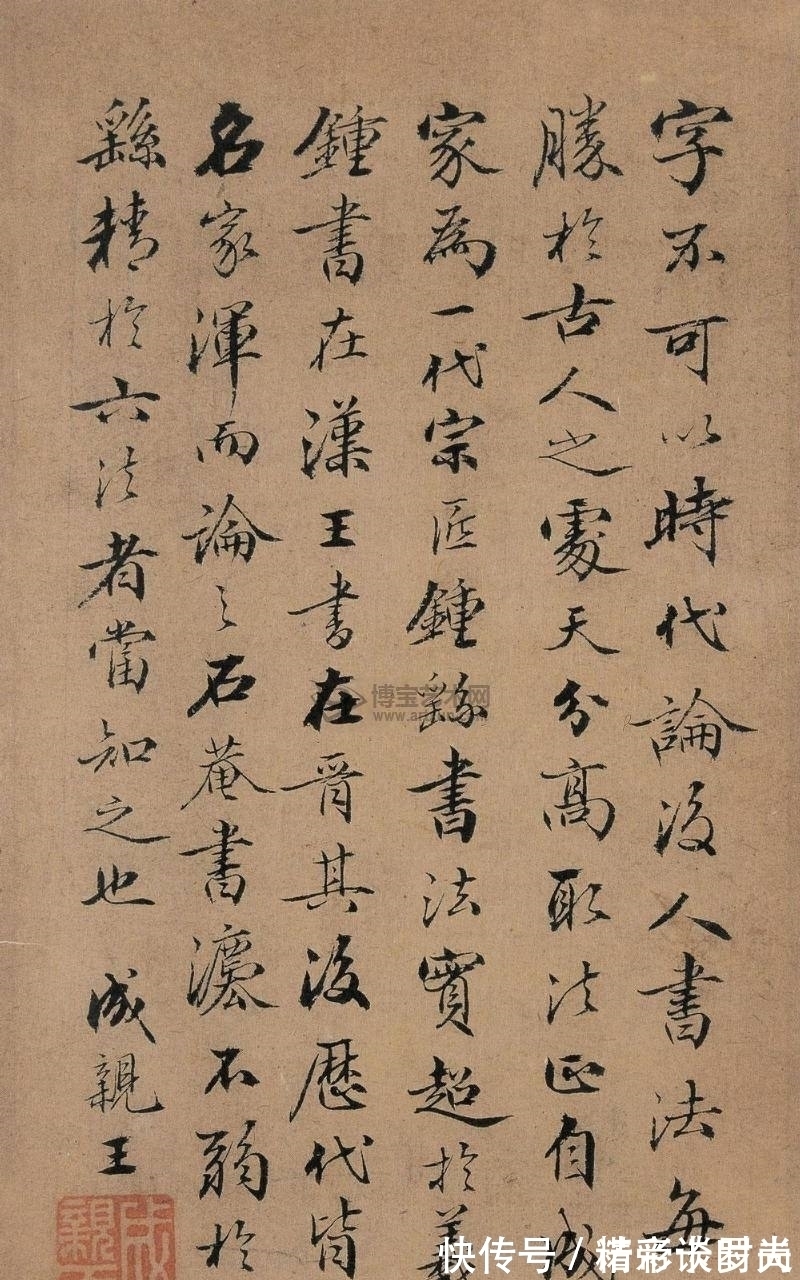 字不可以時代論後人書法每
勝於古人之處天分高取法正自成
家為一代宗匠鍾繇書法實超於羲
鍾書在漢王書在晉其後歷代皆
名家渾而論之石菴書灋不弱於
繇精於六法者當知之也 成親王
博宝艺术网
快传号